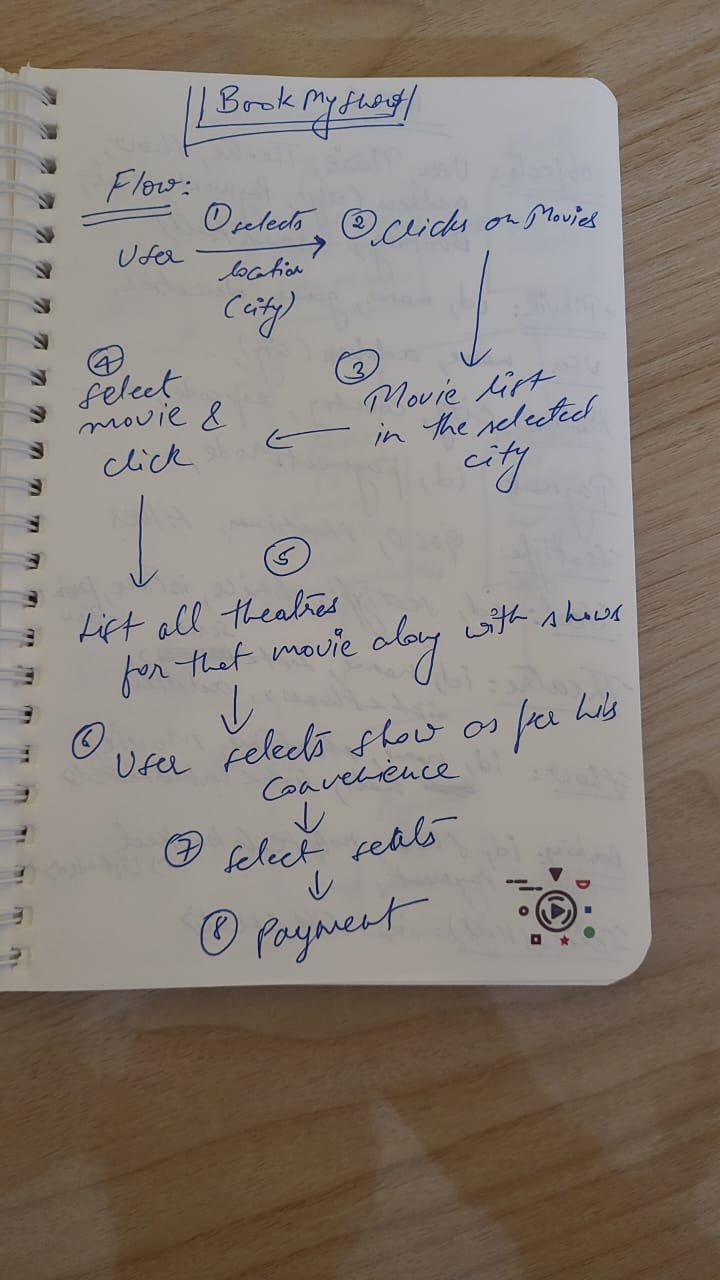 BookMyShow
Flow:
User
① selects
location
(city)
② Clicks on Movies
③
Movie list
in the selected
city
④
select
movie &
click
⑤
List all theatres
for that movie along with shows
⑥ User selects show as per his
convenience
⑦ select seats
⑧ Payment